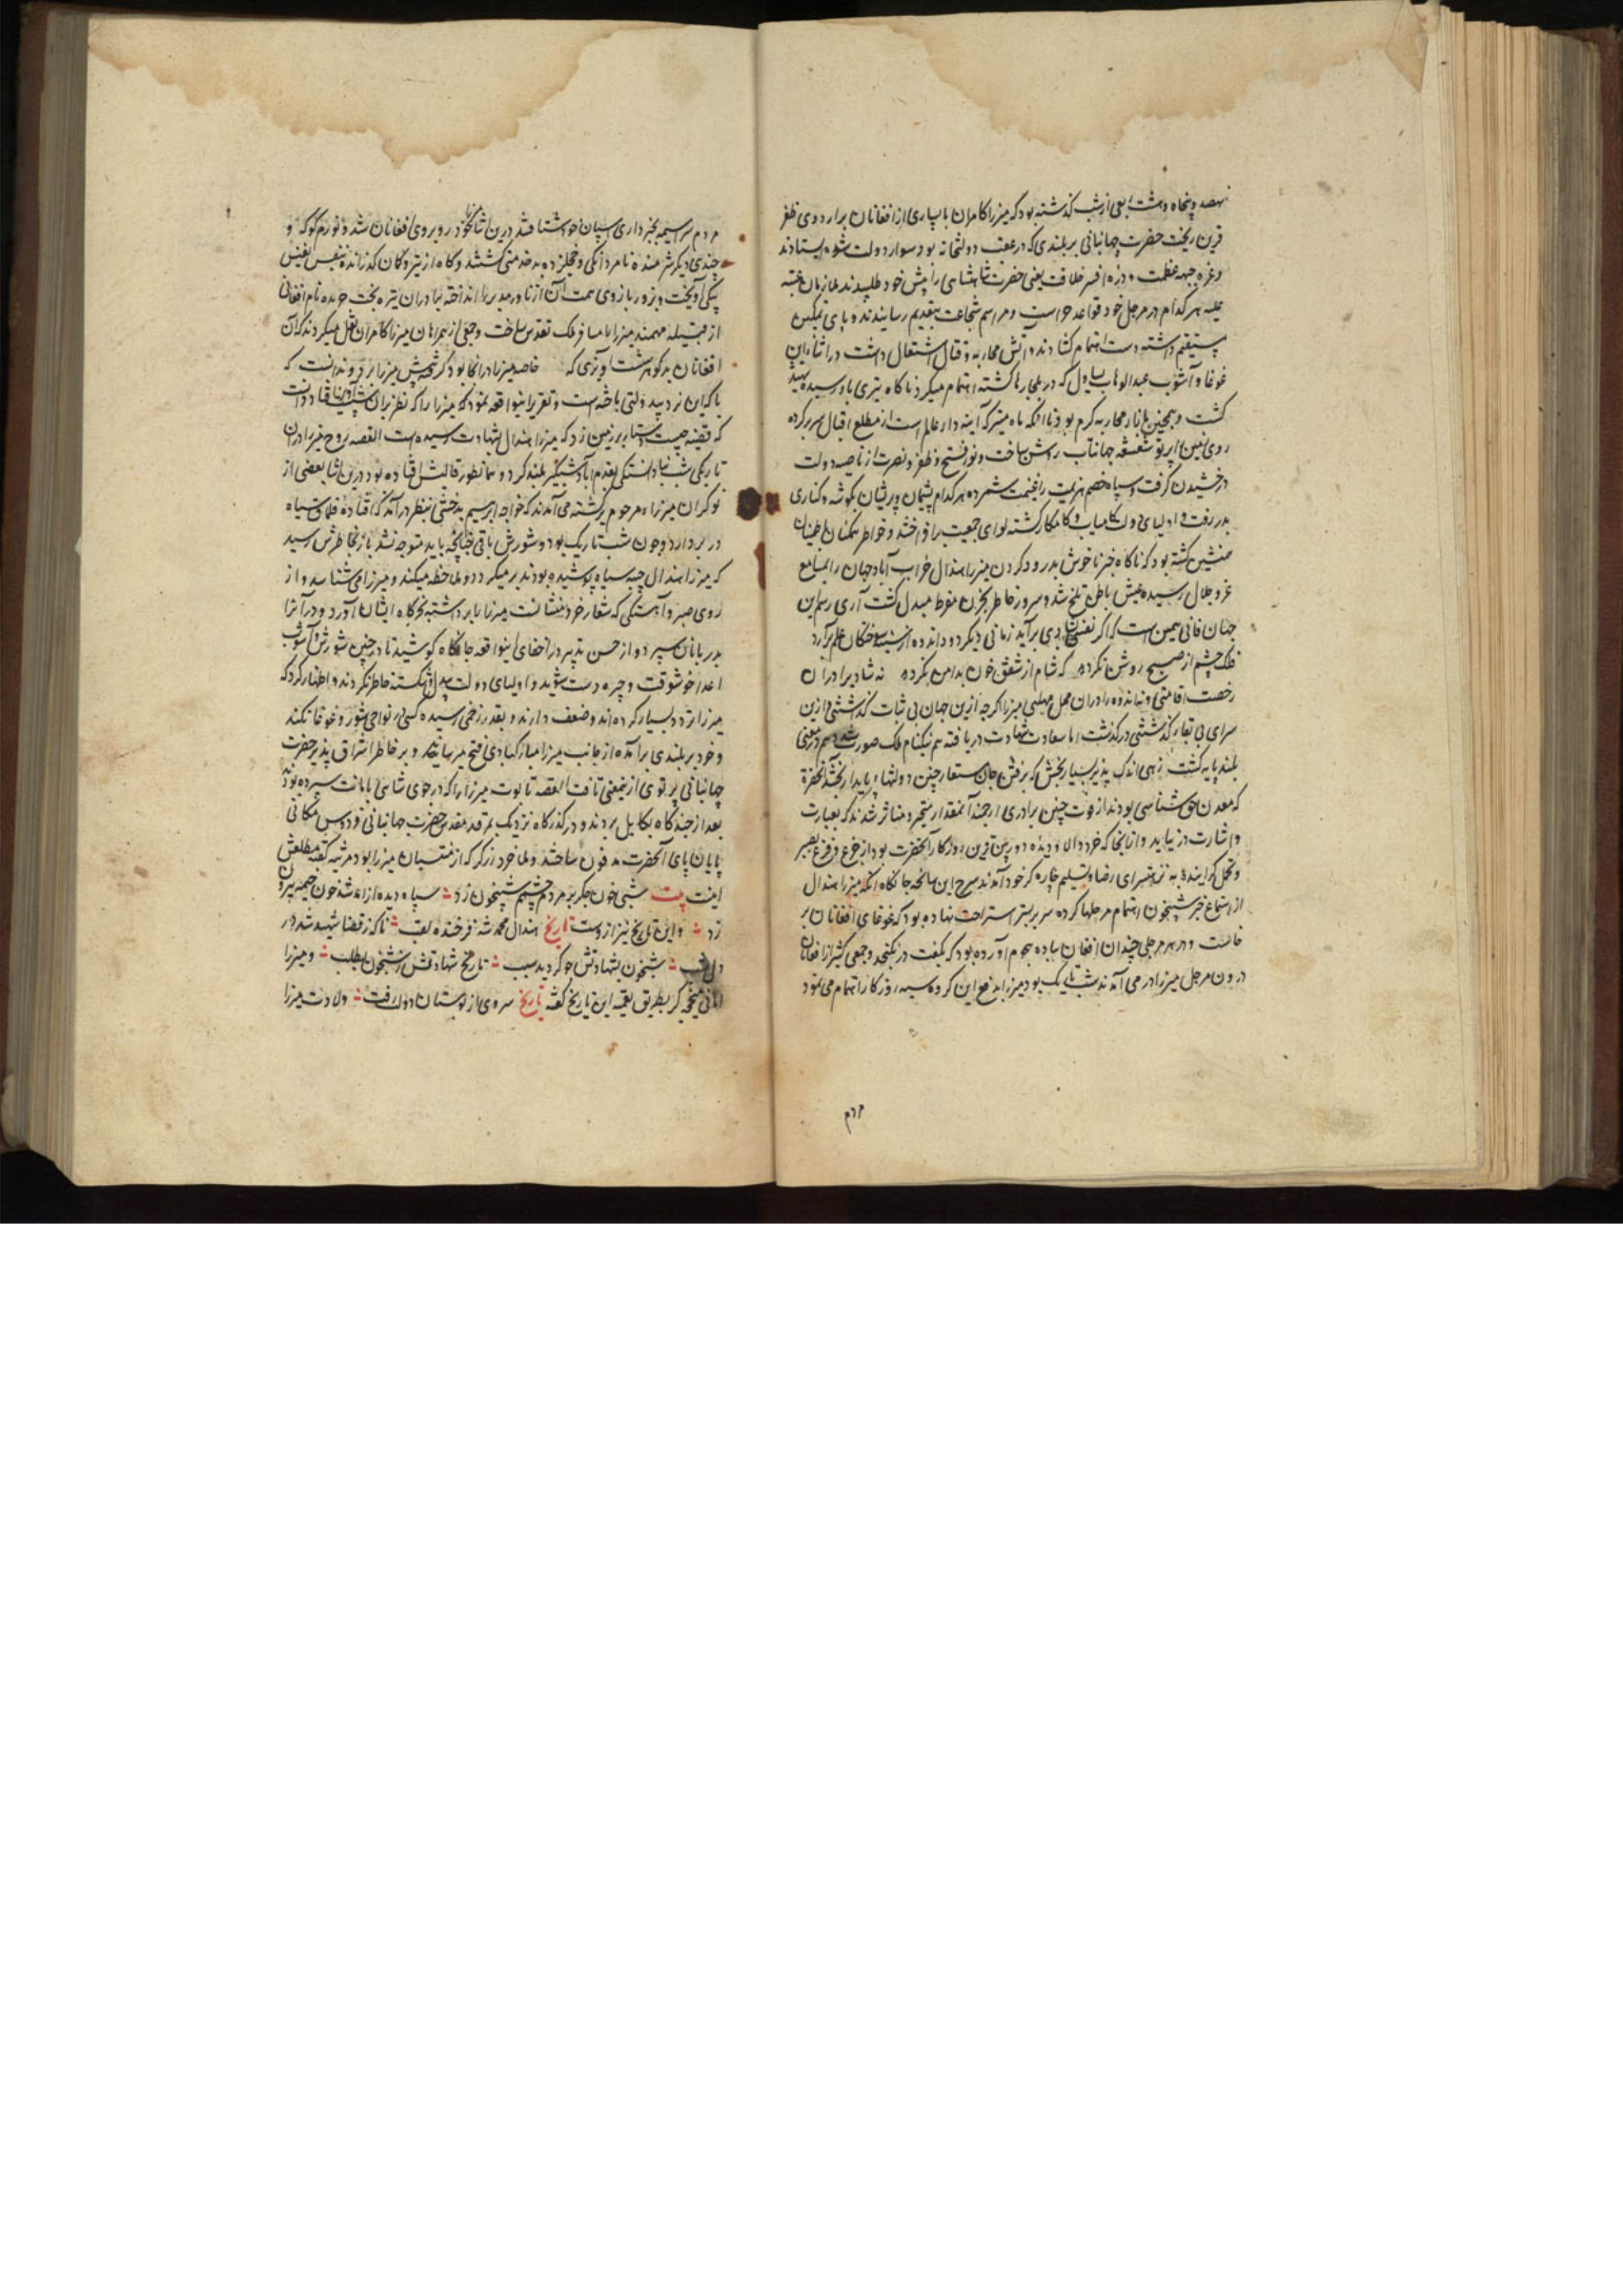 نهصد و پنجاه و هشت ربعی از شب گذشته بود که میرزا کامران با بسیاری از افغانان بر اردوی ظفر
قرین ریخت حضرت جهانبانی بر بلندی که در عقب دولتخانه بود سوار دولت شده ایستادند
و غره جبهه عظمت و دره افسر خلافت یعنی حضرت شاهنشاهی را پیش خود طلبیدند ملازمان عتبه
علیه هر کدام در مرجل خود قواعد حراست و مراسم شجاعت بتقدیم رسانیدند و پای تمکین
مستقیم داشته دست اهتمام گشادند و آتش محاربه و قتال اشتعال داشت در اثناء این
غوغا و آشوب عبدالوهاب یساول که در ملجارها گشته اهتمام میکرد ناگاه تیری باو رسیده شهید
گشت و همچنین بازار محاربه گرم بود تا آنکه ماه منیر که آینه دار عالم است از مطلع اقبال سر بر کرده
روی زمین را پرتو شعشعه جهانتاب روشن ساخت و نور فتح و ظفر و نصرت از ناصیه دولت
درخشیدن گرفت و سپاه خصم هزیمت را غنیمت شمرده هر کدام پشیمان و پریشان بگوشه و کناری
بدر رفت و اولیای دولت کامیاب و کامکار گشته لوای جمعیت برافراختند و خواطر همگنان باطمینان
همنشین گشته بود که ناگاه خبر ناخوش بدرود کردن میرزا هندال خراب آباد جهان را بمسامع
عز و جلال رسیده عیش باطن تلخ شد و سرور خاطر بحزن مفرط مبدل گشت آری رسم این
جهان فانی همین است که اگر نفسی بشادی برآید زمانی دیگر دود اندوه از سینه سوختگان علم برآرد
فلک چشم از صبح روشن نکرده که شام از شفق خون بدامن نکرده نه شادیرا در آن
رخصت اقامتی و نه اندوه را در آن محل مهلتی میرزا اگرچه ازین جهان بی ثبات گذشتنی و ازین
سرای بی بقاء گذاشتنی درگذشت اما سعادت شهادت دریافته هم نیکنام ملک صورت شد و هم در معنی
بلند پایه گشت زهی اندک پذیر بسیار بخش که برفتن جان مستعار چنین دولتهاء پایدار بخشد آنحضرت
که معدن حق شناسی بودند از فوت چنین برادری ارجمند آنمقدار متحیر و متاثر شدند که بعبارت
و اشارت در نیاید و از آنجا که خرد والا و دیده دوربین قرین روزگار آنحضرت بود از جزع و فزع بصبر
و تحمل گراینده به نزهتسرای رضا و تسلیم چاره گر خود آمدند شرح این سانحه جانکاه آنکه میرزا هندال
از استماع خبر شبیخون اهتمام مرجلها کرده سر بر بستر استراحت نهاده بود که غوغای افغانان بر
خاست و در هر مرجلی چندان افغان پیاده هجوم آورده بود که بگفت در نگنجد و جمعی کثیر از افغانان
درون مرجل میرزا در می آمدند شب تاریک بود میرزا بدفع این گروه سیه روزگار اهتمام می نمود
مردم
مردم سراسیمه بخبرداری اسپان خود شتافتند درین اثنا میرزا خود روبروی افغانان شد و نورم کوکه و
چندی دیگر شرمنده نامردانگی و خجلت زده بدخدمتی گشتند و کار از تیر و کمان گذرانده بنفس نفیس
بیکی آویخت و بزور بازوی همت آن از ناورد مدبر را انداخته برادران تیره بخت جریده نام افغانی
از قبیله مهمند میرزا را مسافر ملک تقدس ساخت و جمعی از همراهان میرزا کامران نقل میکردند که آن
افغانان بدگوهر شست آویزی که خاصه میرزا در آنجا بود گرفته پیش میرزا برد و ندانست که
با که این نرد بید دولتی باخته است و تقریر اینواقعه نمود که میرزا را که نظر بر آن شست آویز افتاد دانست
که قضیه چیست دستار بر زمین زد که میرزا هندال بشهادت رسیده است القصه روح میرزا در آن
تاریکی شب نادانستگی بقدم آباد شبگیر بلند کرد و همانطور قالبش افتاده بود درین اثنا بعضی از
نوکران میرزاء مرحوم برگشته می آمدند که خواجه ابراهیم بدخشی بنظر درآمد که افتاده قلماق سیاه
در بر دارد و چون شب تاریک بود و شورش باقی چنانچه باید متوجه نشد باز بخاطرش رسید
که میرزا هندال جبه سیاه پوشیده بودند بر میگردد و ملاحظه میکند و میرزا می شناسد و از
روی صبر و آهستگی که شعار خردمنشانست میرزا را برداشته بخرگاه ایشان آورد و در آنرا
بدربانان سپرد و از حسن تدبیر در اخفای اینواقعه جانکاه کوشید تا در چنین شورش و آشوب
اعدا خوشوقت و چیره دست نشوند و اولیای دولت بیدل و شکسته خاطر نگردند و اظهار کرد که
میرزا تردد بسیار کرده اند و ضعف دارند و بقدر زخمی رسیده کسی در نواحی شور و غوغا نکند
و خود بر بلندی برآمده از جانب میرزا مبارکبادی فتح میرسانید و بر خاطر اشراق پذیر حضرت
جهانبانی پرتوی از ینمعنی تافت القصه تابوت میرزا را که در جوی شاهی بامانت سپرده بودند
بعد از چند گاه بکابل بردند و در گذرگاه نزدیک بمرقد مقدس حضرت جهانبانی فردوس مکانی
پایان پای آنحضرت مدفون ساختند و ملا خرد زرگر که از منتسبان میرزا بود مرثیه گفته مطلعش
اینست بیت شبی خون جگر بر مردم چشمم شبیخون زد سپاه دیده از آمد شد خون خیمه بیرون
زد و این تاریخ نیز از وست تاریخ هندال محمد شه فرخنده لقب ناگه ز قضا شهید شد در
دل شب شبخون بشهادتش چو گردید سبب تاریخ شهادتش ز شبخون بطلب و میرزا
امانی میخچه گر بطریق تعمیه این تاریخ گفته تاریخ سروی از بوستان دولت رفت ولادت میرزا